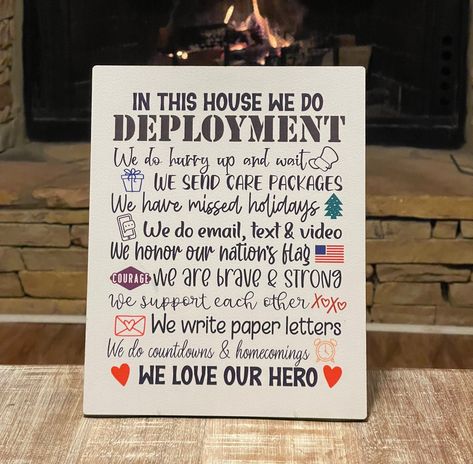 IN THIS HOUSE WE DO
DEPLOYMENT
We do hurry up and wait
WE SEND CARE PACKAGES
We have missed holidays
We do email, text & video
We honor our nation's flag
COURAGE WE ARE BRAVE & STRONG
We support each other XOXO
We write paper letters
We do countdowns & homecomings
WE LOVE OUR HERO